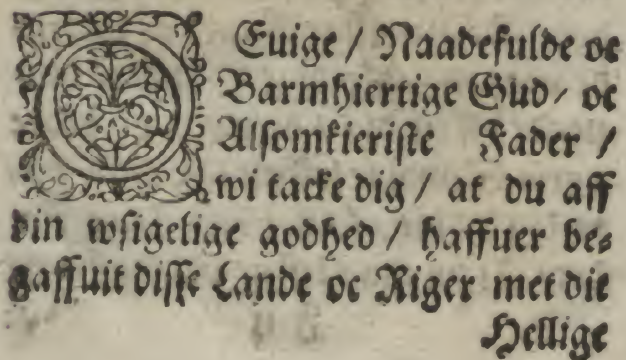 O Euige / Naadefulde oc
Barmhiertige Gud / oc
Alsomkieriste Fader /
wi tacke dig / at du aff
din wsigelige godhed / haffuer be⸗
gaffuit disse Lande oc Riger met dit
Hellige